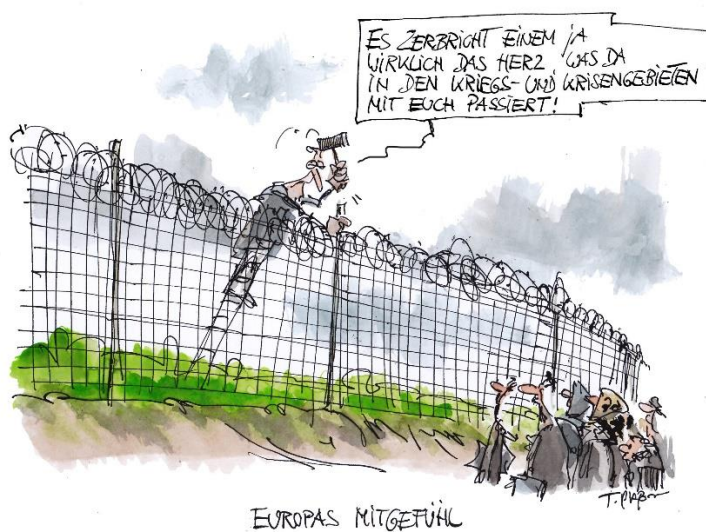 ES ZERBRICHT EINEM JA
WIRKLICH DAS HERZ WAS DA
IN DEN KRIEGS- UND KRISENGEBIETEN
MIT EUCH PASSIERT!
EUROPAS MITGEFÜHL